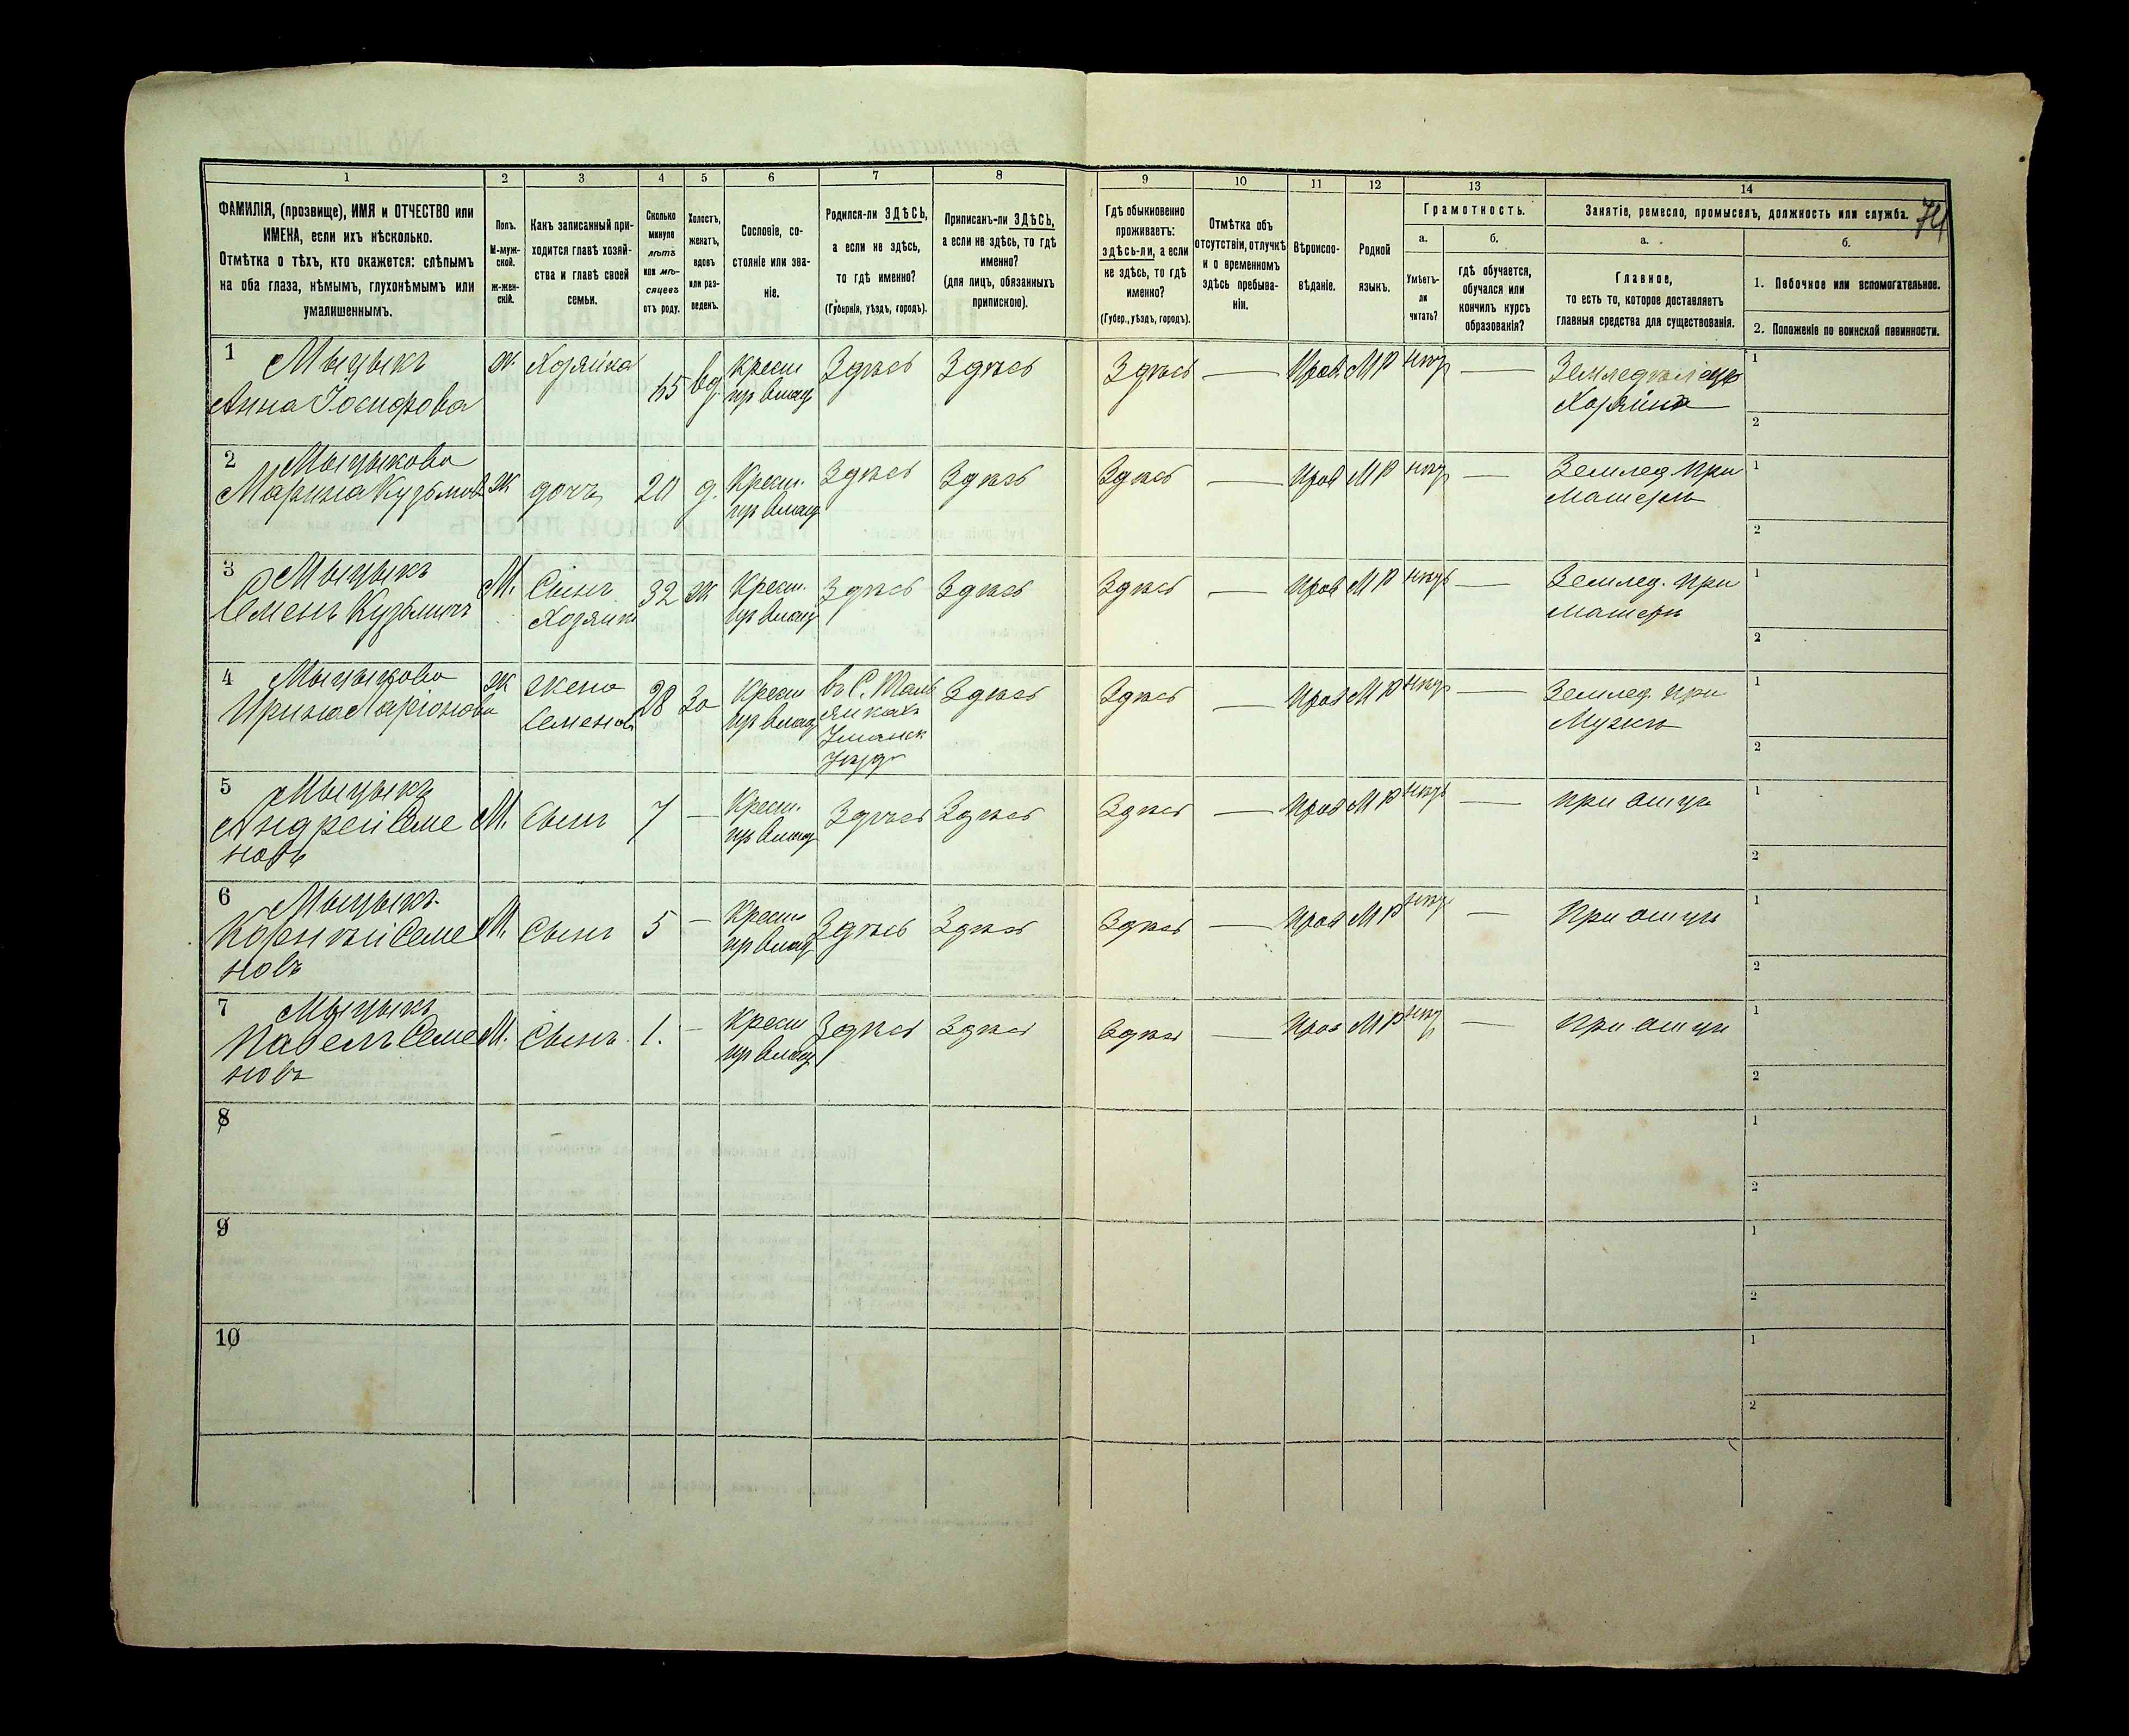 1 2 3 4 5 6 7 8 9 10 11 12 13 14
74
ФАМИЛІЯ, (прозвище), ИМЯ и ОТЧЕСТВО или
ИМЕНА, если ихъ нѣсколько.
Отмѣтка о тѣхъ, кто окажется: слѣпымъ
на оба глаза, нѣмымъ, глухонѣмымъ или
умалишеннымъ.
Полъ.
М-муж-
ской.
Ж-жен-
скій.
Какъ записанный при-
ходится главѣ хозяй-
ства и главѣ своей
семьи.
Сколько
минуло
лѣтъ
или мѣ-
сяцевъ
отъ роду.
Холостъ,
женатъ,
вдовъ
или раз-
веденъ.
Сословіе, со-
стояніе или зва-
ніе.
Родился-ли ЗДѢСЬ,
а если не здѣсь,
то гдѣ именно?
(Губернія, уѣздъ, городъ).
Приписанъ-ли ЗДѢСЬ,
а если не здѣсь, то гдѣ
именно?
(для лицъ, обязанныхъ
припискою).
Гдѣ обыкновенно
проживаетъ:
здѣсь-ли, а если
не здѣсь, то гдѣ
именно?
(Губер., уѣздъ, городъ).
Отмѣтка объ
отсутствіи, отлучкѣ
и о временномъ
здѣсь пребыва-
ніи.
Вѣроиспо-
вѣданіе.
Родной
языкъ.
Грамотность.
а.
Умѣетъ-
ли
читать?
б.
гдѣ обучается,
обучался или
кончилъ курсъ
образованія?
Занятіе, ремесло, промыселъ, должность или служба.
а.
Главное,
то есть то, которое доставляетъ
главныя средства для существованія.
б.
1. Побочное или вспомогательное.
2. Положеніе по воинской повинности.
1 Мыцыкъ
Анна Іосифова
ж Хозяйка 65 вд. Крест
пр влад Здѣсь Здѣсь Здѣсь — Прав МР нѣт — Земледѣлецъ
Хозяйка
1
2
2 Мыцыкова
Марина Кузьмов
ж дочь 20 д. Крест.
пр влад Здѣсь Здѣсь Здѣсь — Прав МР нѣт — Землед при
Матери
1
2
3 Мыцыкъ
Семенъ Кузьмичъ
М. Сынъ
Хозяйки 32 ж Крест.
пр влад Здѣсь Здѣсь Здѣсь — Прав МР нѣтъ — Землед. при
Матери
1
2
4 Мыцыкова
Ирина Ларіонова
ж жена
Семенов 28 За Крест
пр влад въ С. Таль
янкахъ
Уманск
Уѣзд Здѣсь Здѣсь — Прав МР нѣт — Землед. при
Мужѣ
1
2
5 Мыцыкъ
Андрей Семе
новъ
М. Сынъ 7 — Крест.
пр влад Здѣсь Здѣсь Здѣсь — Прав МР нѣтъ — при отцѣ
1
2
6 Мыцыкъ
Корнѣй Семе
новъ
М. Сынъ 5 — Крест
пр влад Здѣсь Здѣсь Здѣсь — Прав МР нѣт — при отцѣ
1
2
7 Мыцыкъ
Павелъ Семе
новъ
М. Сынъ 1. — Крест
пр влад Здѣсь Здѣсь Здѣсь — Прав МР нѣт — при отцѣ
1
2
8
1
2
9
1
2
10
1
2